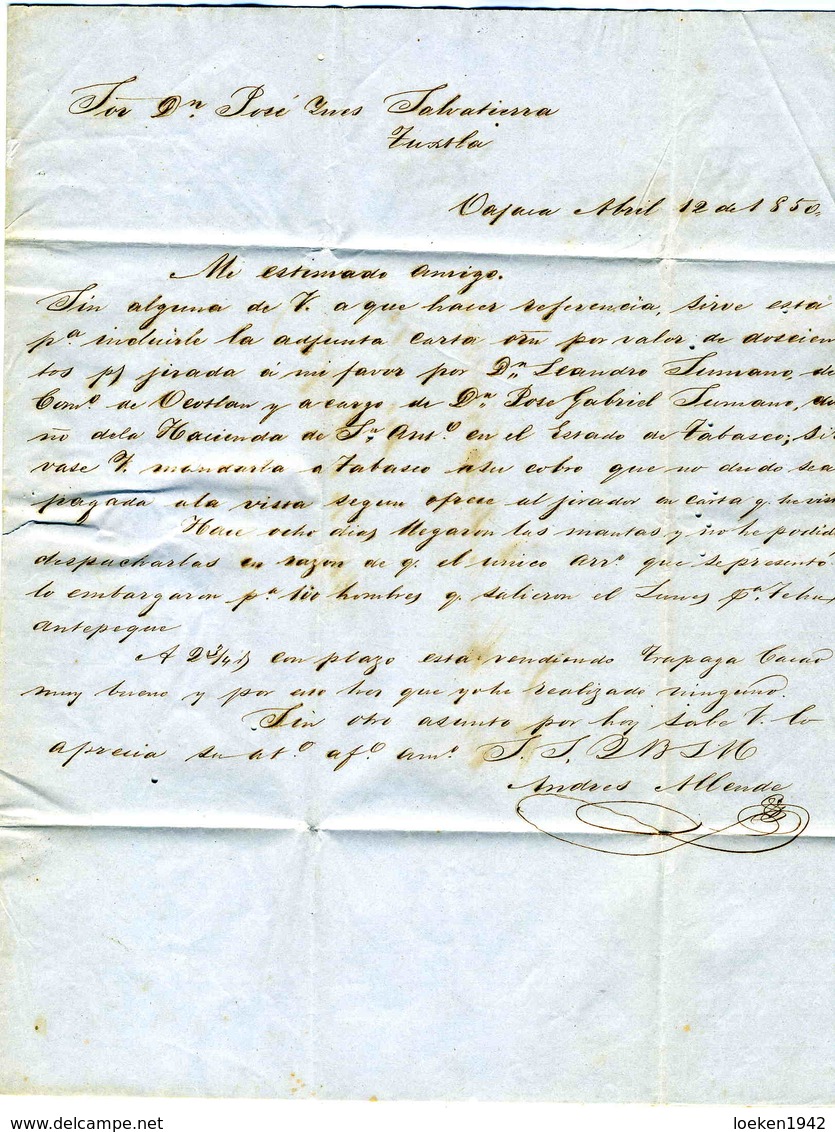 Sor Dn. José Ynes Salvatierra
Tuxtla
Oajaca Abril 12 de 1850.
Mi estimado amigo.
Sin alguna de V. a que hacer referencia, sirve esta
pa incluirle la adjunta carta orn por valor de doscien
tos ps jirada á mi favor por Dn. Leandro Sumano, de
Como. de Ocotlan y a cargo de Dn. Jose Gabriel Sumano, du
ño dela Hacienda de Sn. Anto. en el Estado de Tabasco; sir
vase V. mandarla a Tabasco asu cobro que no dudo sea
pagada ala vista segun ofrece el jirador en carta q. he vis
Hace ocho dias llegaron las mantas y no he podid
despacharlas en razon de q. el unico arro. que se presentó
lo embargaron pa. 100 hombres q. salieron el Lunes pa. Tehu
antepeque
A 2 3/4 rs con plazo está vendiendo Trapaga Cacao
muy bueno y por eso ves que yo he realizado ninguno.
Sin otro asunto por hoy sabe V. lo
apresia su ato. afo. amo. S. S. Q B S M
Andres Allende
delcampe.net
loeken1942